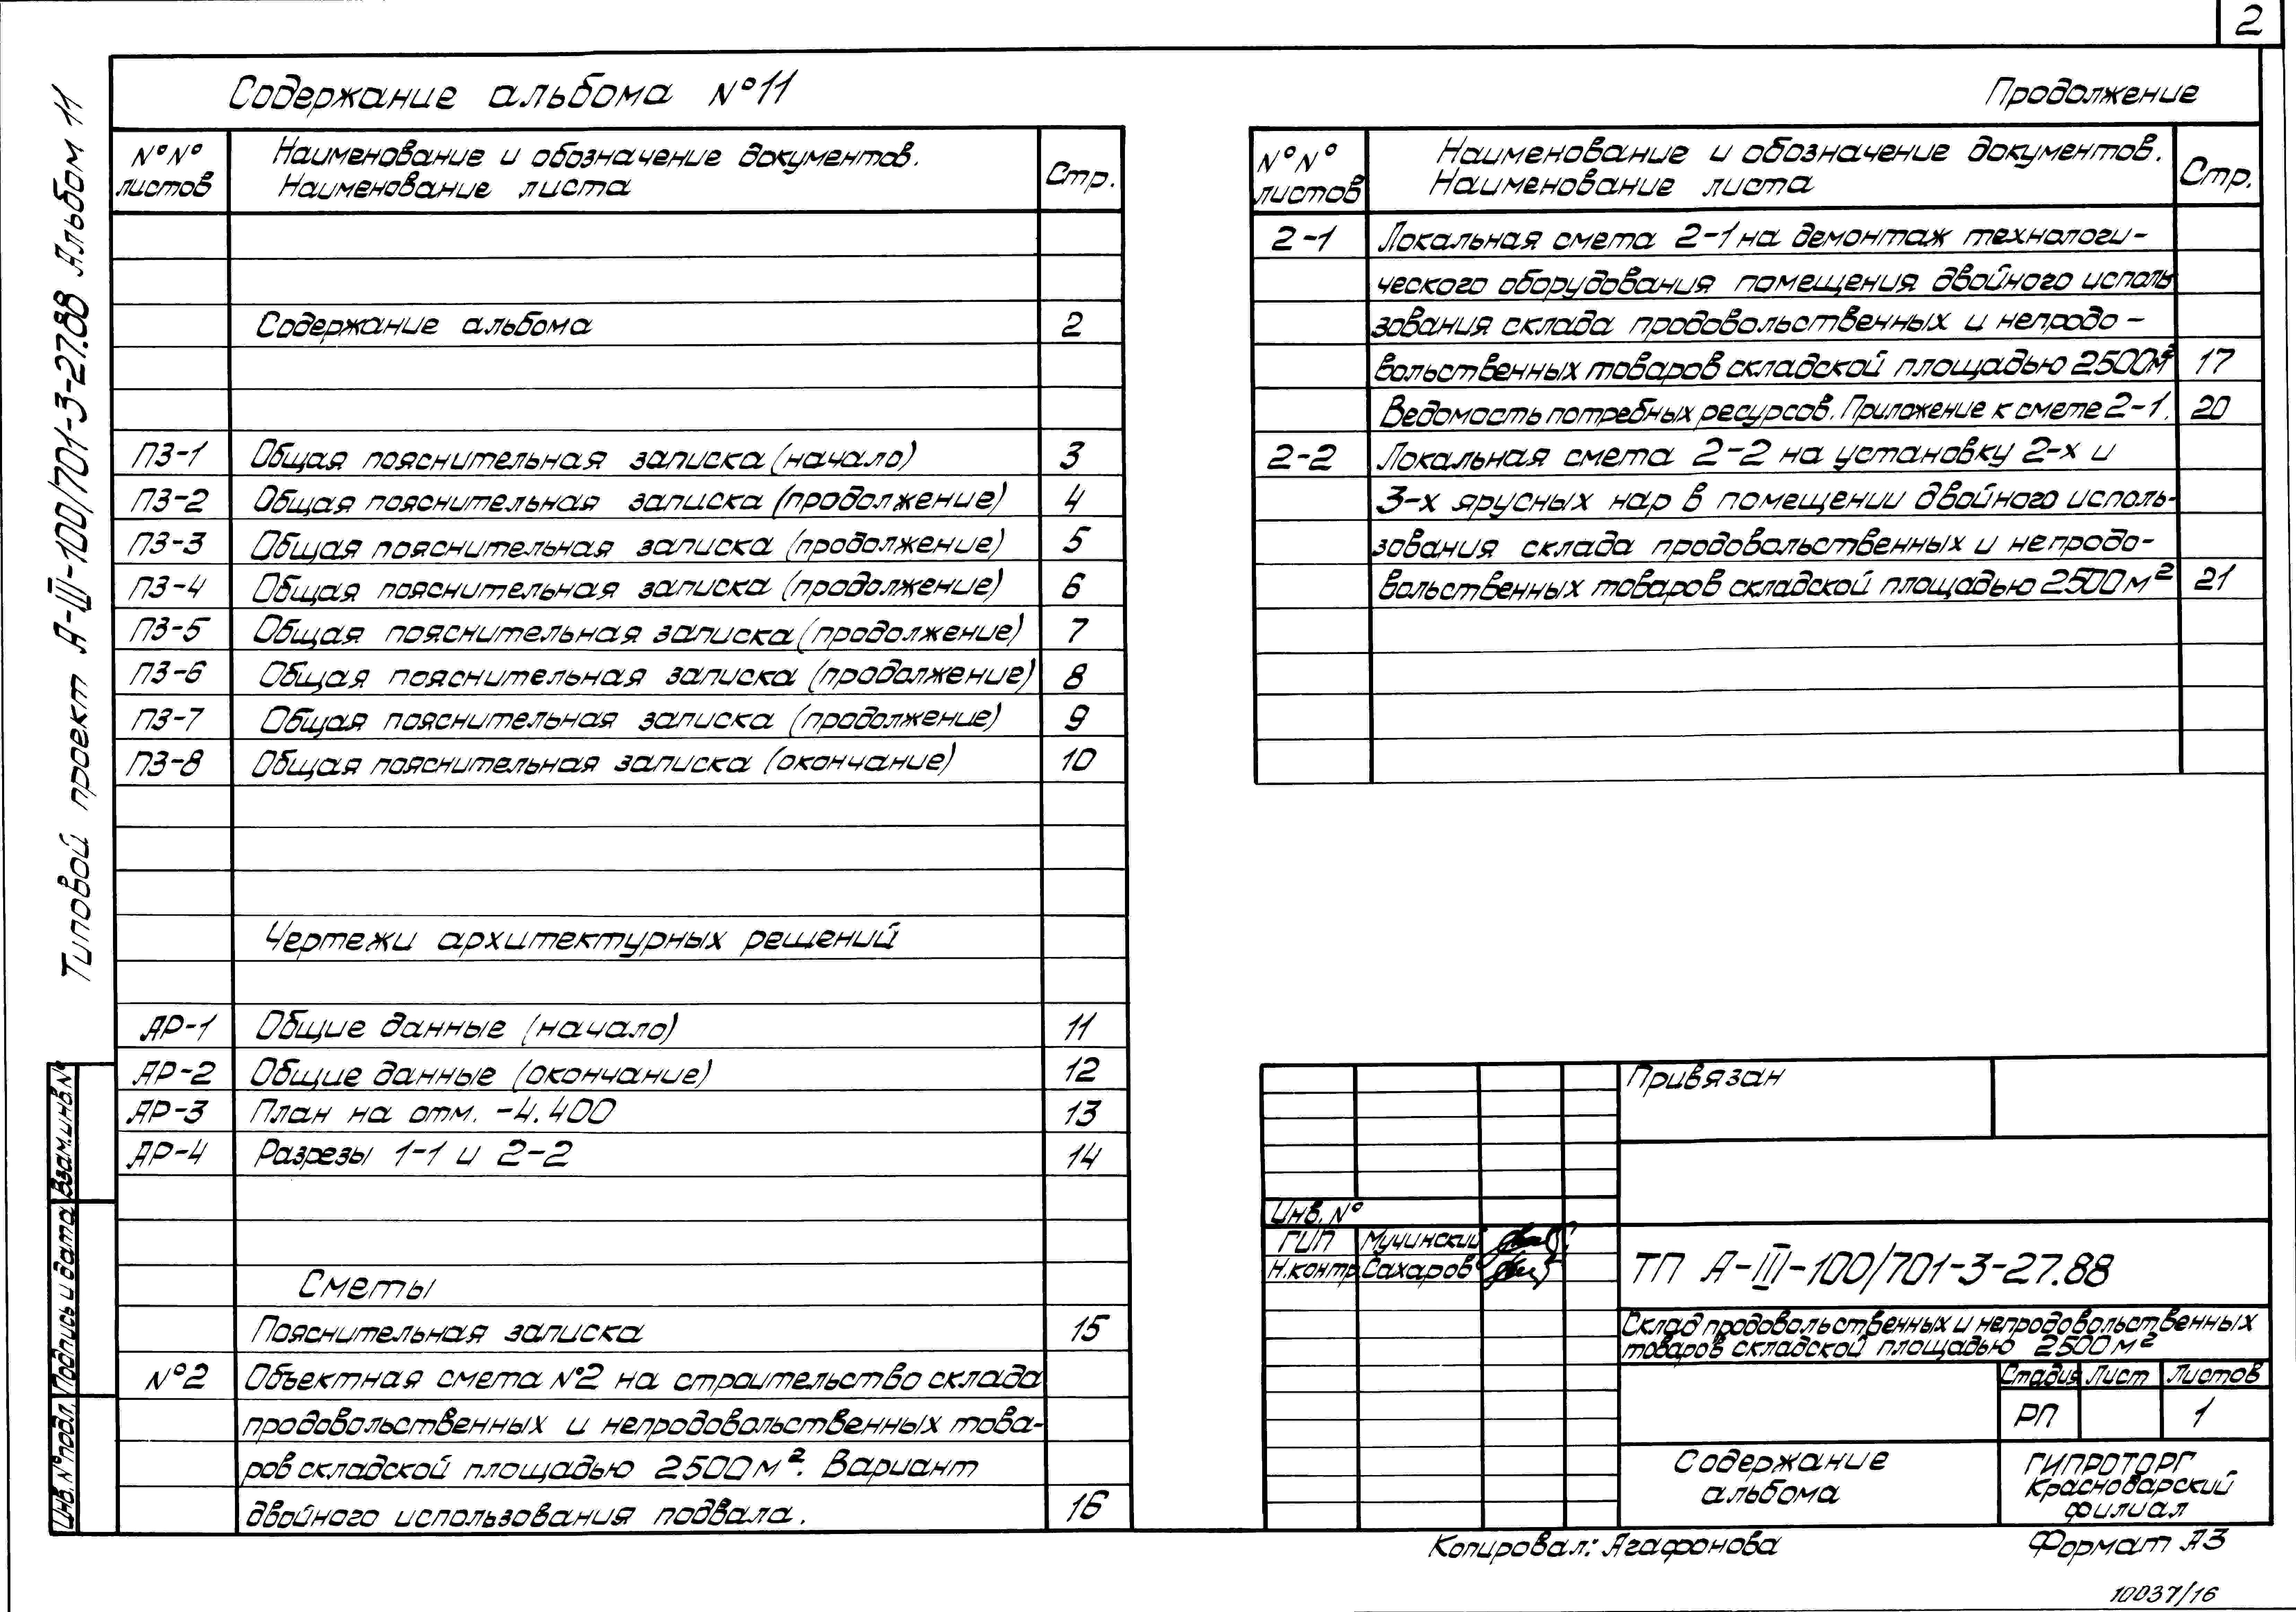 2
Типовой проект А-III-100/701-3-27.88 Альбом 11
Содержание альбома №11
№№ листов
Наименование и обозначение документов.
Наименование листа
Стр.
Содержание альбома 2
ПЗ-1 Общая пояснительная записка (начало) 3
ПЗ-2 Общая пояснительная записка (продолжение) 4
ПЗ-3 Общая пояснительная записка (продолжение) 5
ПЗ-4 Общая пояснительная записка (продолжение) 6
ПЗ-5 Общая пояснительная записка (продолжение) 7
ПЗ-6 Общая пояснительная записка (продолжение) 8
ПЗ-7 Общая пояснительная записка (продолжение) 9
ПЗ-8 Общая пояснительная записка (окончание) 10
Чертежи архитектурных решений
АР-1 Общие данные (начало) 11
АР-2 Общие данные (окончание) 12
АР-3 План на отм. -4.400 13
АР-4 Разрезы 1-1 и 2-2 14
Сметы
Пояснительная записка 15
№2 Объектная смета №2 на строительство склада
продовольственных и непродовольственных това-
ров складской площадью 2500м². Вариант
двойного использования подвала. 16
Взам.инв.№
Подпись и дата
Инв.№ подл.
Продолжение
№№ листов
Наименование и обозначение документов.
Наименование листа
Стр.
2-1 Локальная смета 2-1 на демонтаж технологи-
ческого оборудования помещения двойного исполь
зования склада продовольственных и непродо-
вольственных товаров складской площадью 2500м² 17
Ведомость потребных ресурсов. Приложение к смете 2-1. 20
2-2 Локальная смета 2-2 на установку 2-х и
3-х ярусных нар в помещении двойного исполь-
зования склада продовольственных и непродо-
вольственных товаров складской площадью 2500м² 21
Привязан
Инв. №
ГИП Мучинский
Н.контр. Сахаров
ТП А-III-100/701-3-27.88
Склад продовольственных и непродовольственных
товаров складской площадью 2500м²
Стадия Лист Листов
РП 1
Содержание
альбома
ГИПРОТОРГ
Краснодарский
филиал
Копировал: Агафонова
Формат А3
10037/16